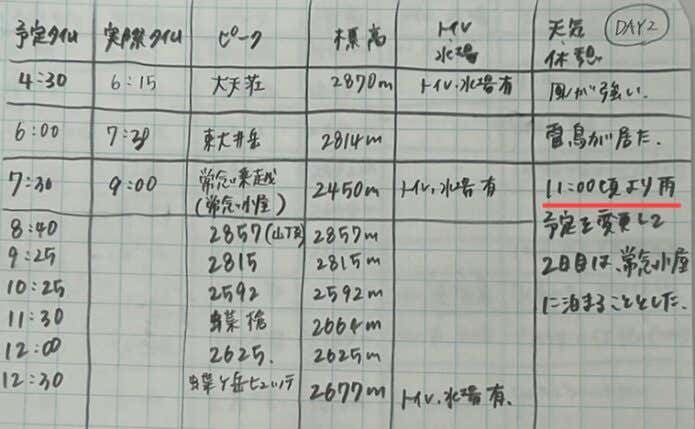 DAY2
予定タイム 実際タイム ピーク 標高 トイレ・水場 天気・休憩
4:30 6:15 大天荘 2870m トイレ・水場有 風が強い。
6:00 7:20 東大井岳 2814m 雷鳥が居た。
7:30 9:00 常念乗越(常念小屋) 2450m トイレ・水場有 11:00頃より雨
8:40 2857(山頂) 2857m 予定を変更して
9:25 2815 2815m 2日目は、常念小屋
10:25 2592 2592m に泊まることとした。
11:30 蝶槍 2664m
12:00 2625. 2625m
12:30 蝶ヶ岳ヒュッテ 2677m トイレ・水場有。